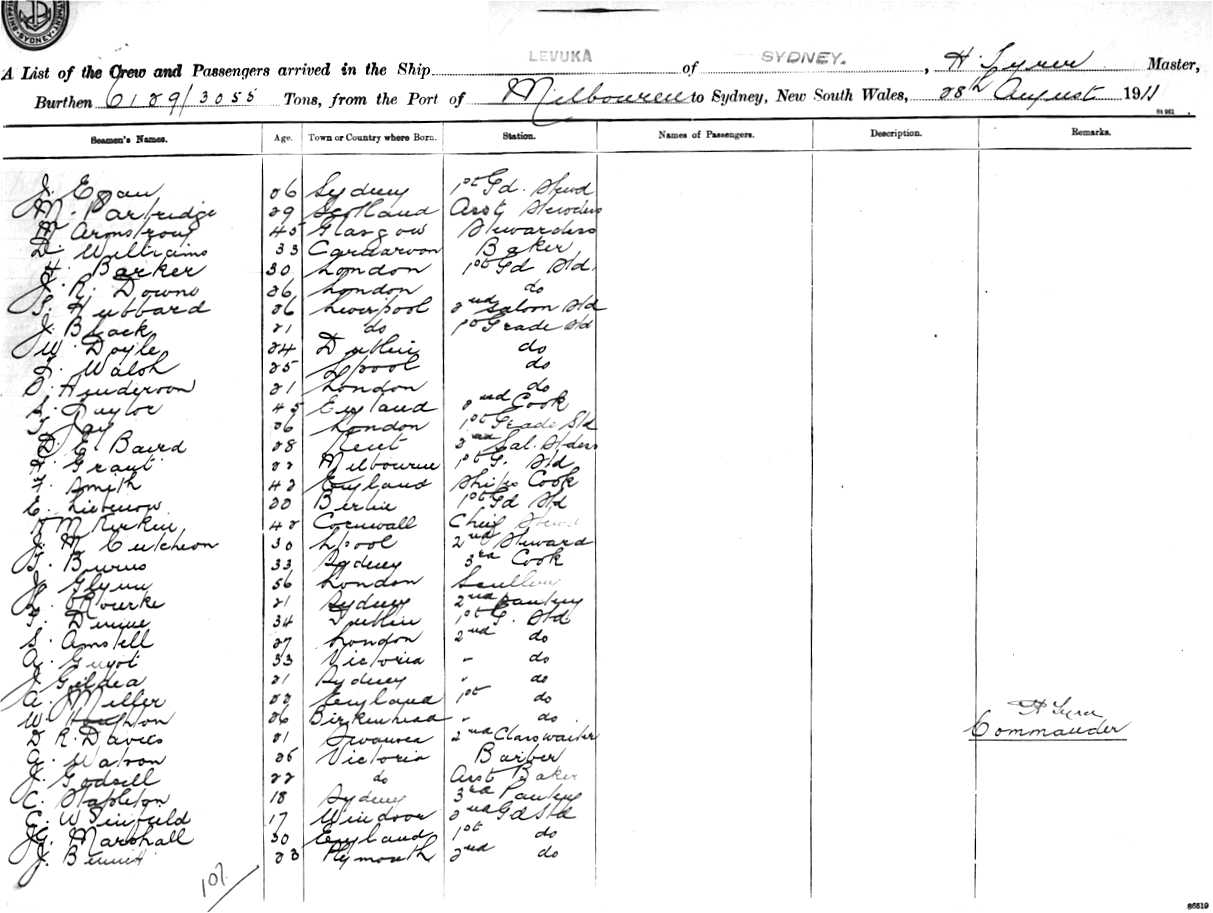 SYDNEY
LEVUKA SYDNEY.
A List of the Crew and Passengers arrived in the Ship of , H. Tyrer Master,
Burthen 6129/3055 Tons, from the Port of Melbourne to Sydney, New South Wales, 28th August 1911
Seamen's Names. Age. Town or Country where Born. Station. Names of Passengers. Description. Remarks.
J. Egan 26 Sydney 1st Gd. Stewd
M. Partridge 29 Scotland Asst Stewdess
M Armstrong 45 Glasgow Stewardess
D. Williams 33 Carnarvon Baker
H. Barker 30 London 1st Gd Std.
J. R. Downs 26 London do
S. Hubbard 26 Liverpool 2nd Saloon Std
J. Black 21 do 1st Grade Std
W. Doyle 24 Dublin do
J. Walsh 25 Lpool do
Henderson 21 London do
S. Taylor 45 England 2nd Cook
T. Day 26 London 1st Grade Std
D. E. Baird 28 Kent 2nd Sal. Stdess
H. Grant 22 Melbourne 1st G. Std
F. Smith 42 England Ships Cook
E. Liebenow 20 Berlin 1st Gd Std
42 Cornwall Chief Stewd
J. McCutcheon 30 Lpool 2nd Steward
T. Burns 33 Sydney 3rd Cook
J. Glynn 56 London Scullery
O'Rourke 21 Sydney 2nd Pantry
T. Dunne 34 Dublin 1st G. Std
S. Amstell 27 London 2nd do
A. Guyot 33 Victoria " do
J. Gildea 21 Sydney " do
A. Miller 22 England 1st do
W. Houghton 26 Birkenhead " do
H Tyrer
D. R. Davies 21 Swansea 2nd Class waiter
Commander
A. Watson 26 Victoria Barber
J. Godsell 22 do Asst Baker
C. Stapleton 18 Sydney 3rd Pantry
C. Winfield 17 Windsor 2nd Gd Std
J.G. Marshall 30 England 1st do
J. Bennett 23 Plymouth 2nd do
107
86519